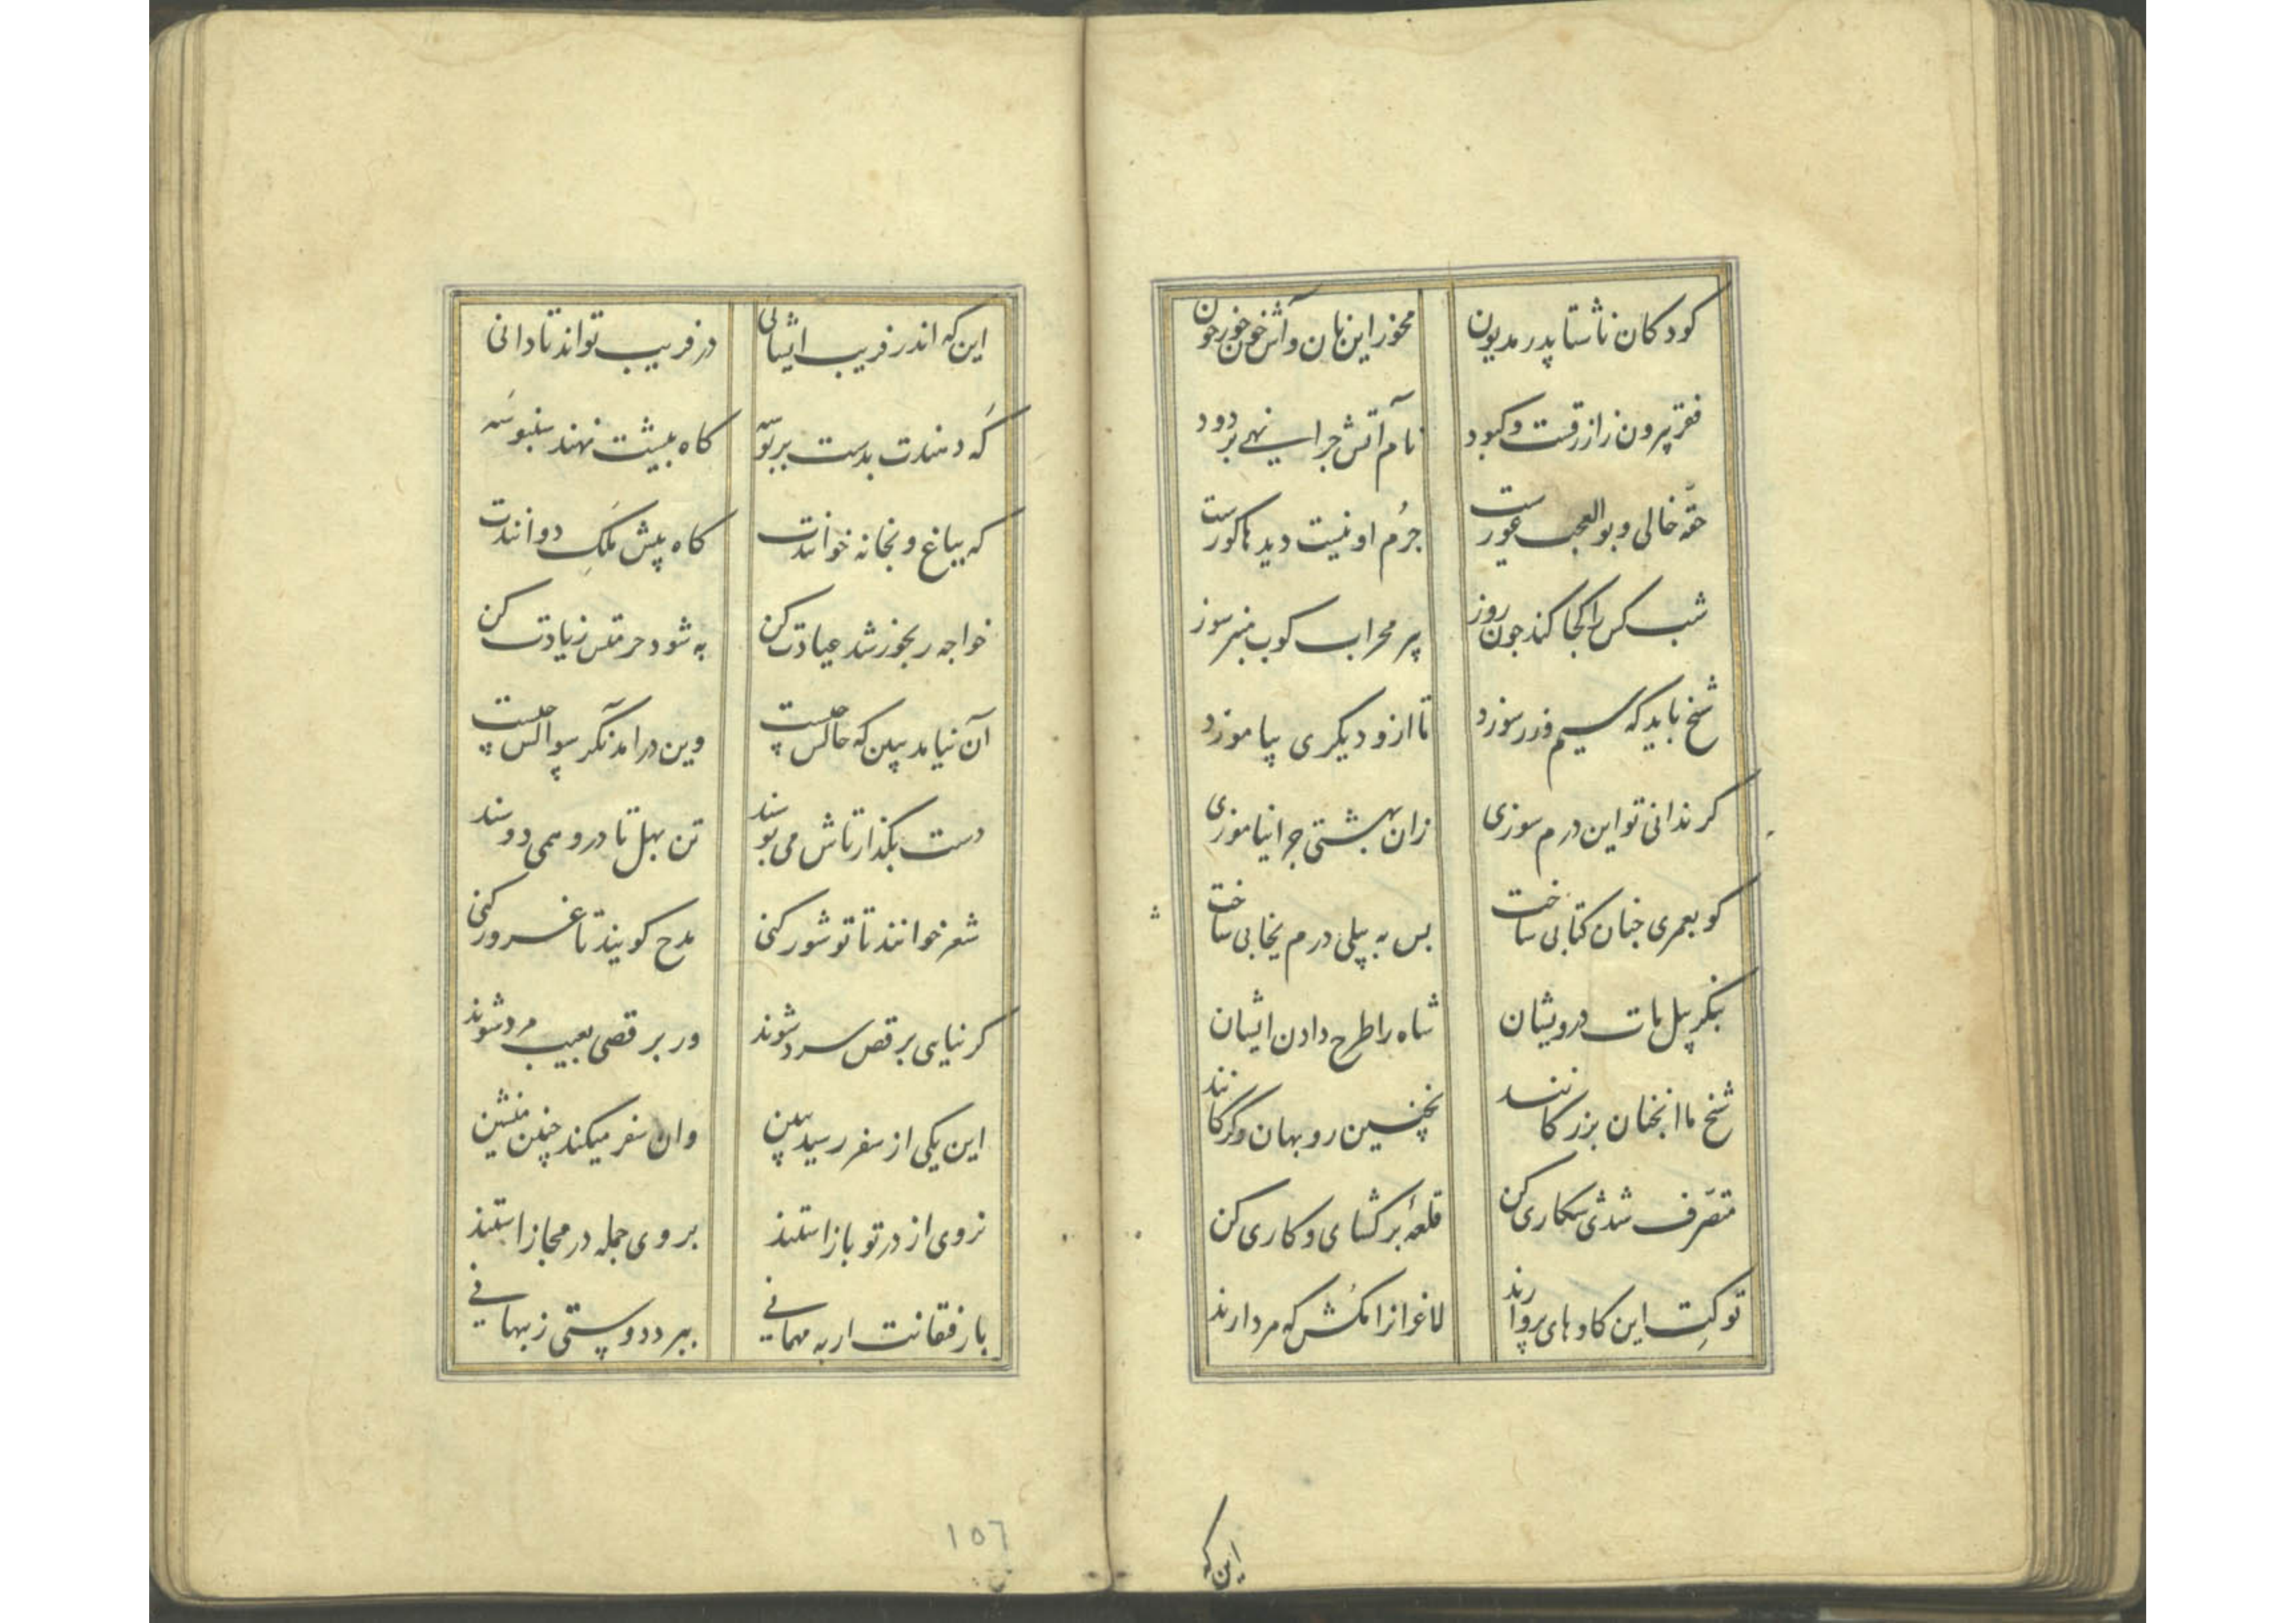 کودکان ناشتا پدر مدیون مخور این نان و آش خون خور خون
فقر پرون زازرقست و کبود نام آتش جرا نهی بر دود
حقّه خالی و بوالعجب عورست جرُم او نیست دیدها کورست
شب کس را کجا کند جون روز پر محراب کوب منبر سوز
شیخ باید که سیم و زر سوزد تا ازو دیکری بیاموزد
کر ندانی تو این درم سوزی زان بهشتی جرا نیاموزی
کو بعمری جنان کتابی ساخت بس به پیلی درم یخابی ساخت
بنکر پیل مات درویشان شاه را طرح دادن ایشان
شیخ ما انجنان بزرکانند بجنین روبهان و کرکانند
متصَرف شدی شکاری کن قلعهٔ برکشای و کاری کن
تو کتِ این کاوهای پروارند لاغرانرا مکُش که مردارند
این که
این که اندر فریب ایشانی در فریب تواند تا دانی
کَه دهندت بدست بر بوسّه کاه پیشت نهند سنبوسَه
که بباغ و بخانه خوانندت کاه پیش مَلکِ دوانندت
خواجه رنجور شد عیادت کن به شود حرمتش زیادت کن
آن نیامد ببین که حالش چیست وین درامد نکر سوالش چیست
دست بکذار تاش می بوسند تن بهل تا درو همی دوسند
شعر خوانند تا تو شور کنی مدح کویند تا غرور کنی
کر نیایی برقص سرد شوند ور برقصی بعیب مرد شوند
این یکی از سفر رسید ببین وان سفر میکند چنین منشین
نروی از در تو باز استند بروی جمله در مجاز استند
با رفقانت ار به مهمانی ببرد دوستی ز بهمانی
١٥٦